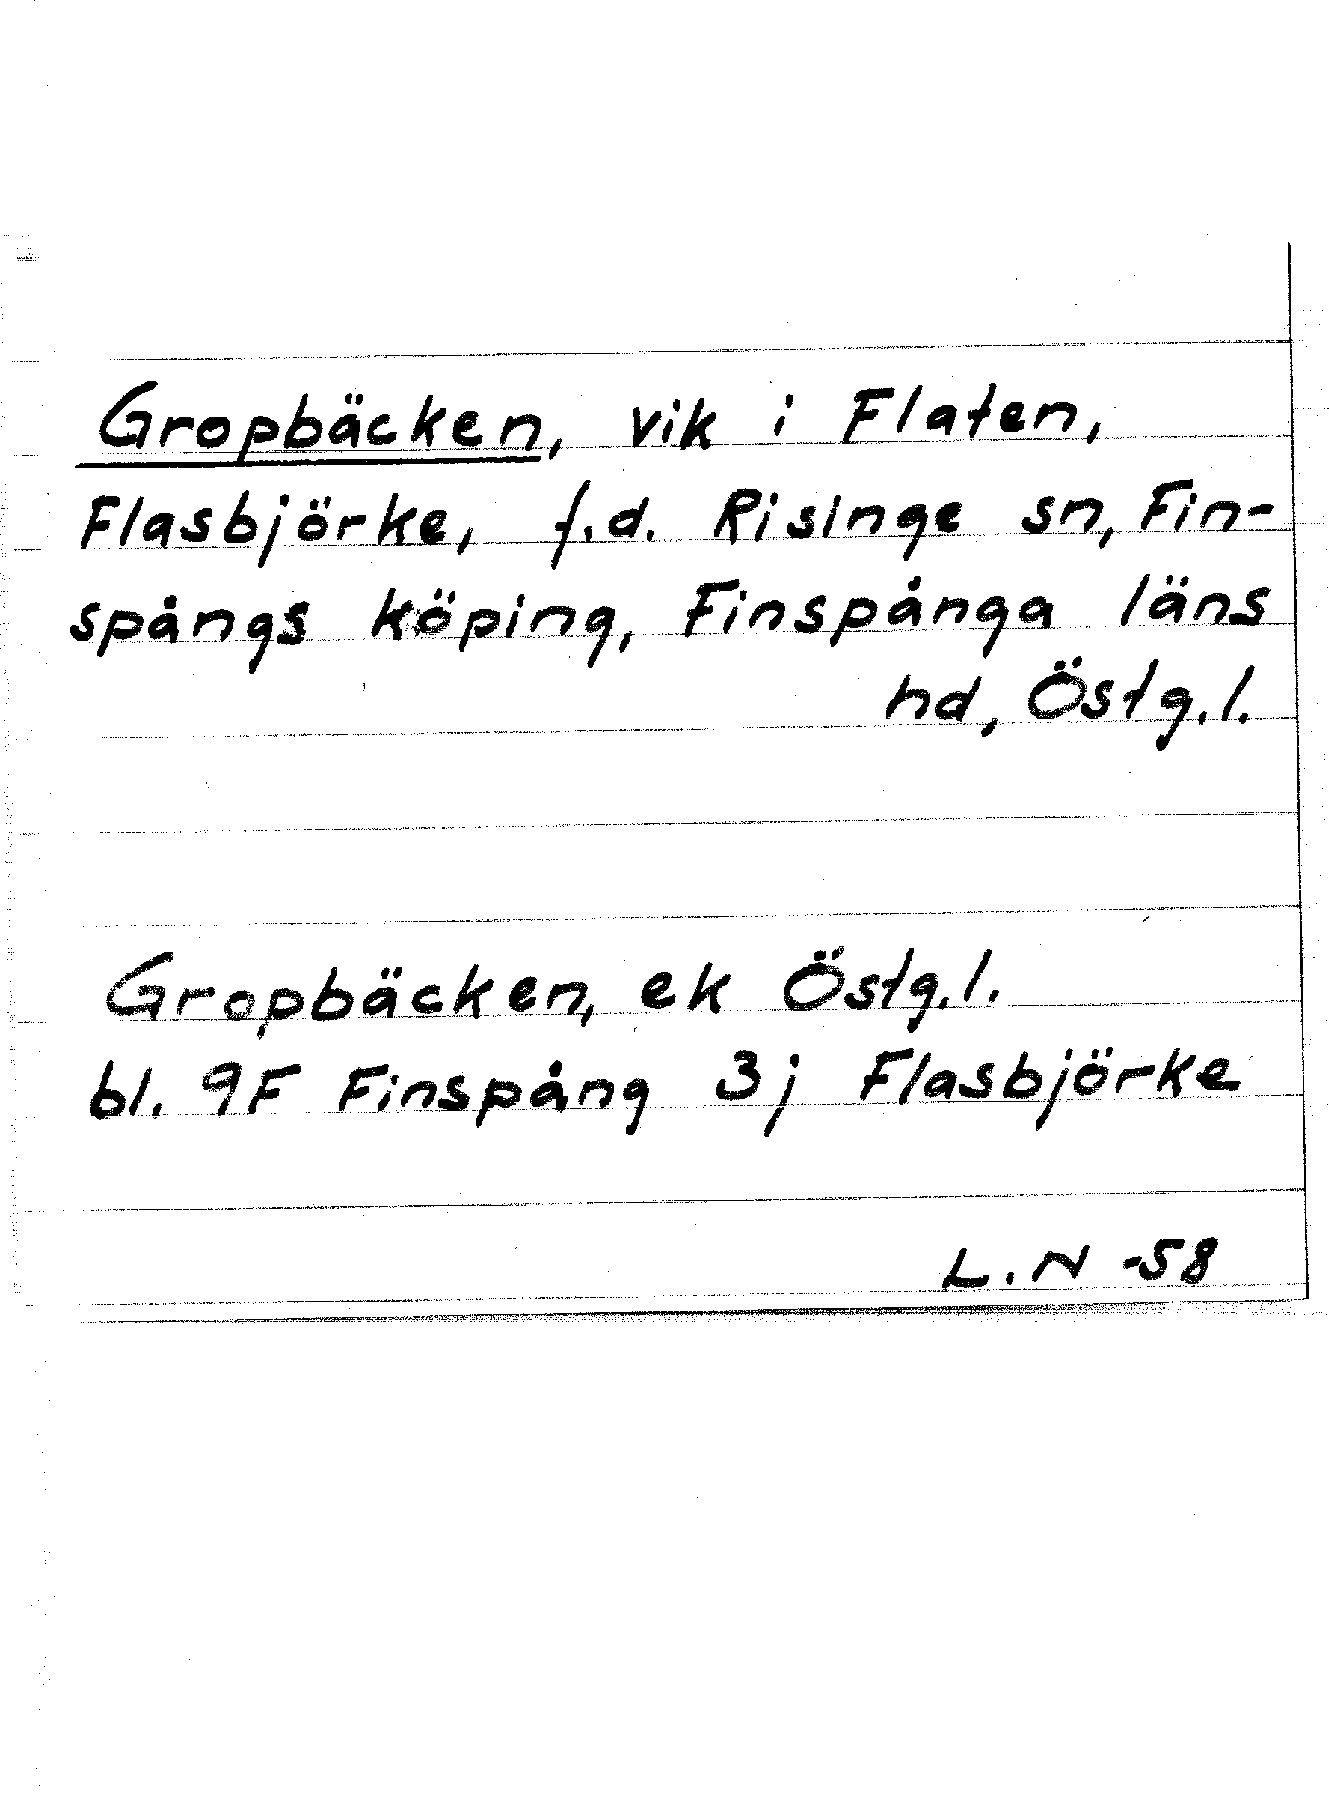 Gropbäcken, vik i Flaten,
Flasbjörke, f.d. Risinge sn, Fin-
spångs köping, Finspånga läns
hd, Östg.l.
Gropbäcken, ek Östg.l.
bl. 9F Finspång 3j Flasbjörke
L.N -58